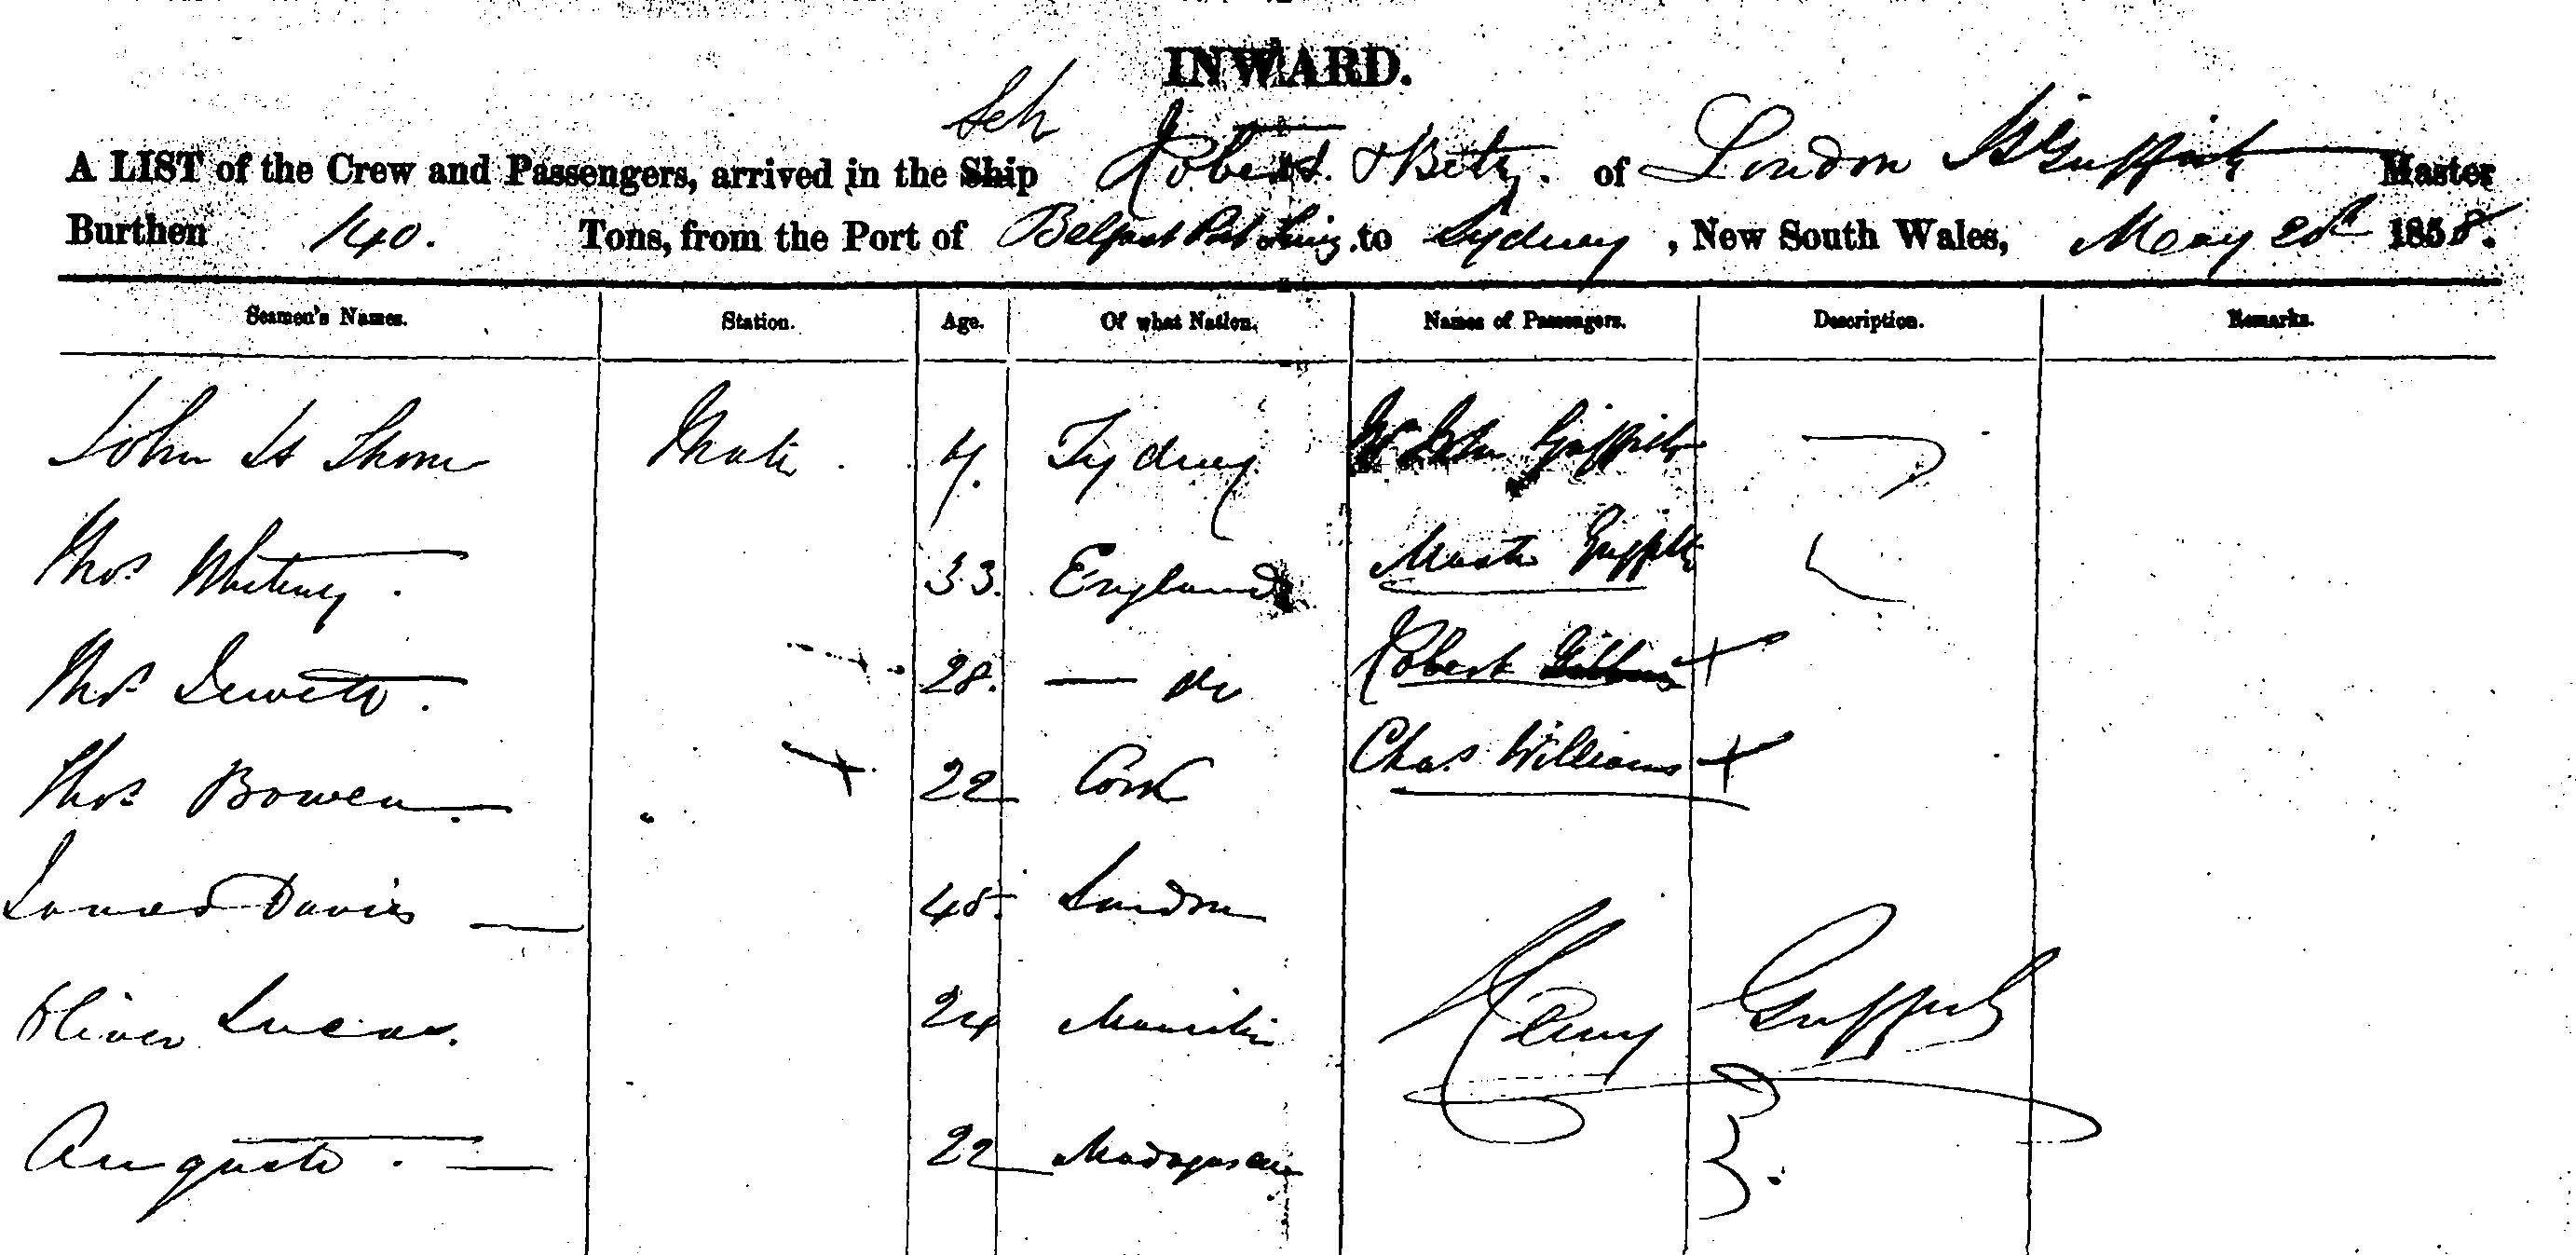 INWARD.
Sch
A LIST of the Crew and Passengers, arrived in the Ship Robert & Betsy. of London H Griffith Master
Burthen 140. Tons, from the Port of Belfast Port to Sydney, New South Wales, May 20th 1858.
Seamen's Names. Station. Age. Of what Nation. Names of Passengers. Description. Remarks.
John Mate. Sydney John Griffith
Thos Whitney. 33. England Griffith
Thos 28. — Do Robert
Thos Bowen. 22 Cork Chas Williams
Davies 45. London
Oliver Lucas. 24 Henry Griffith
22 Madagascar
3.